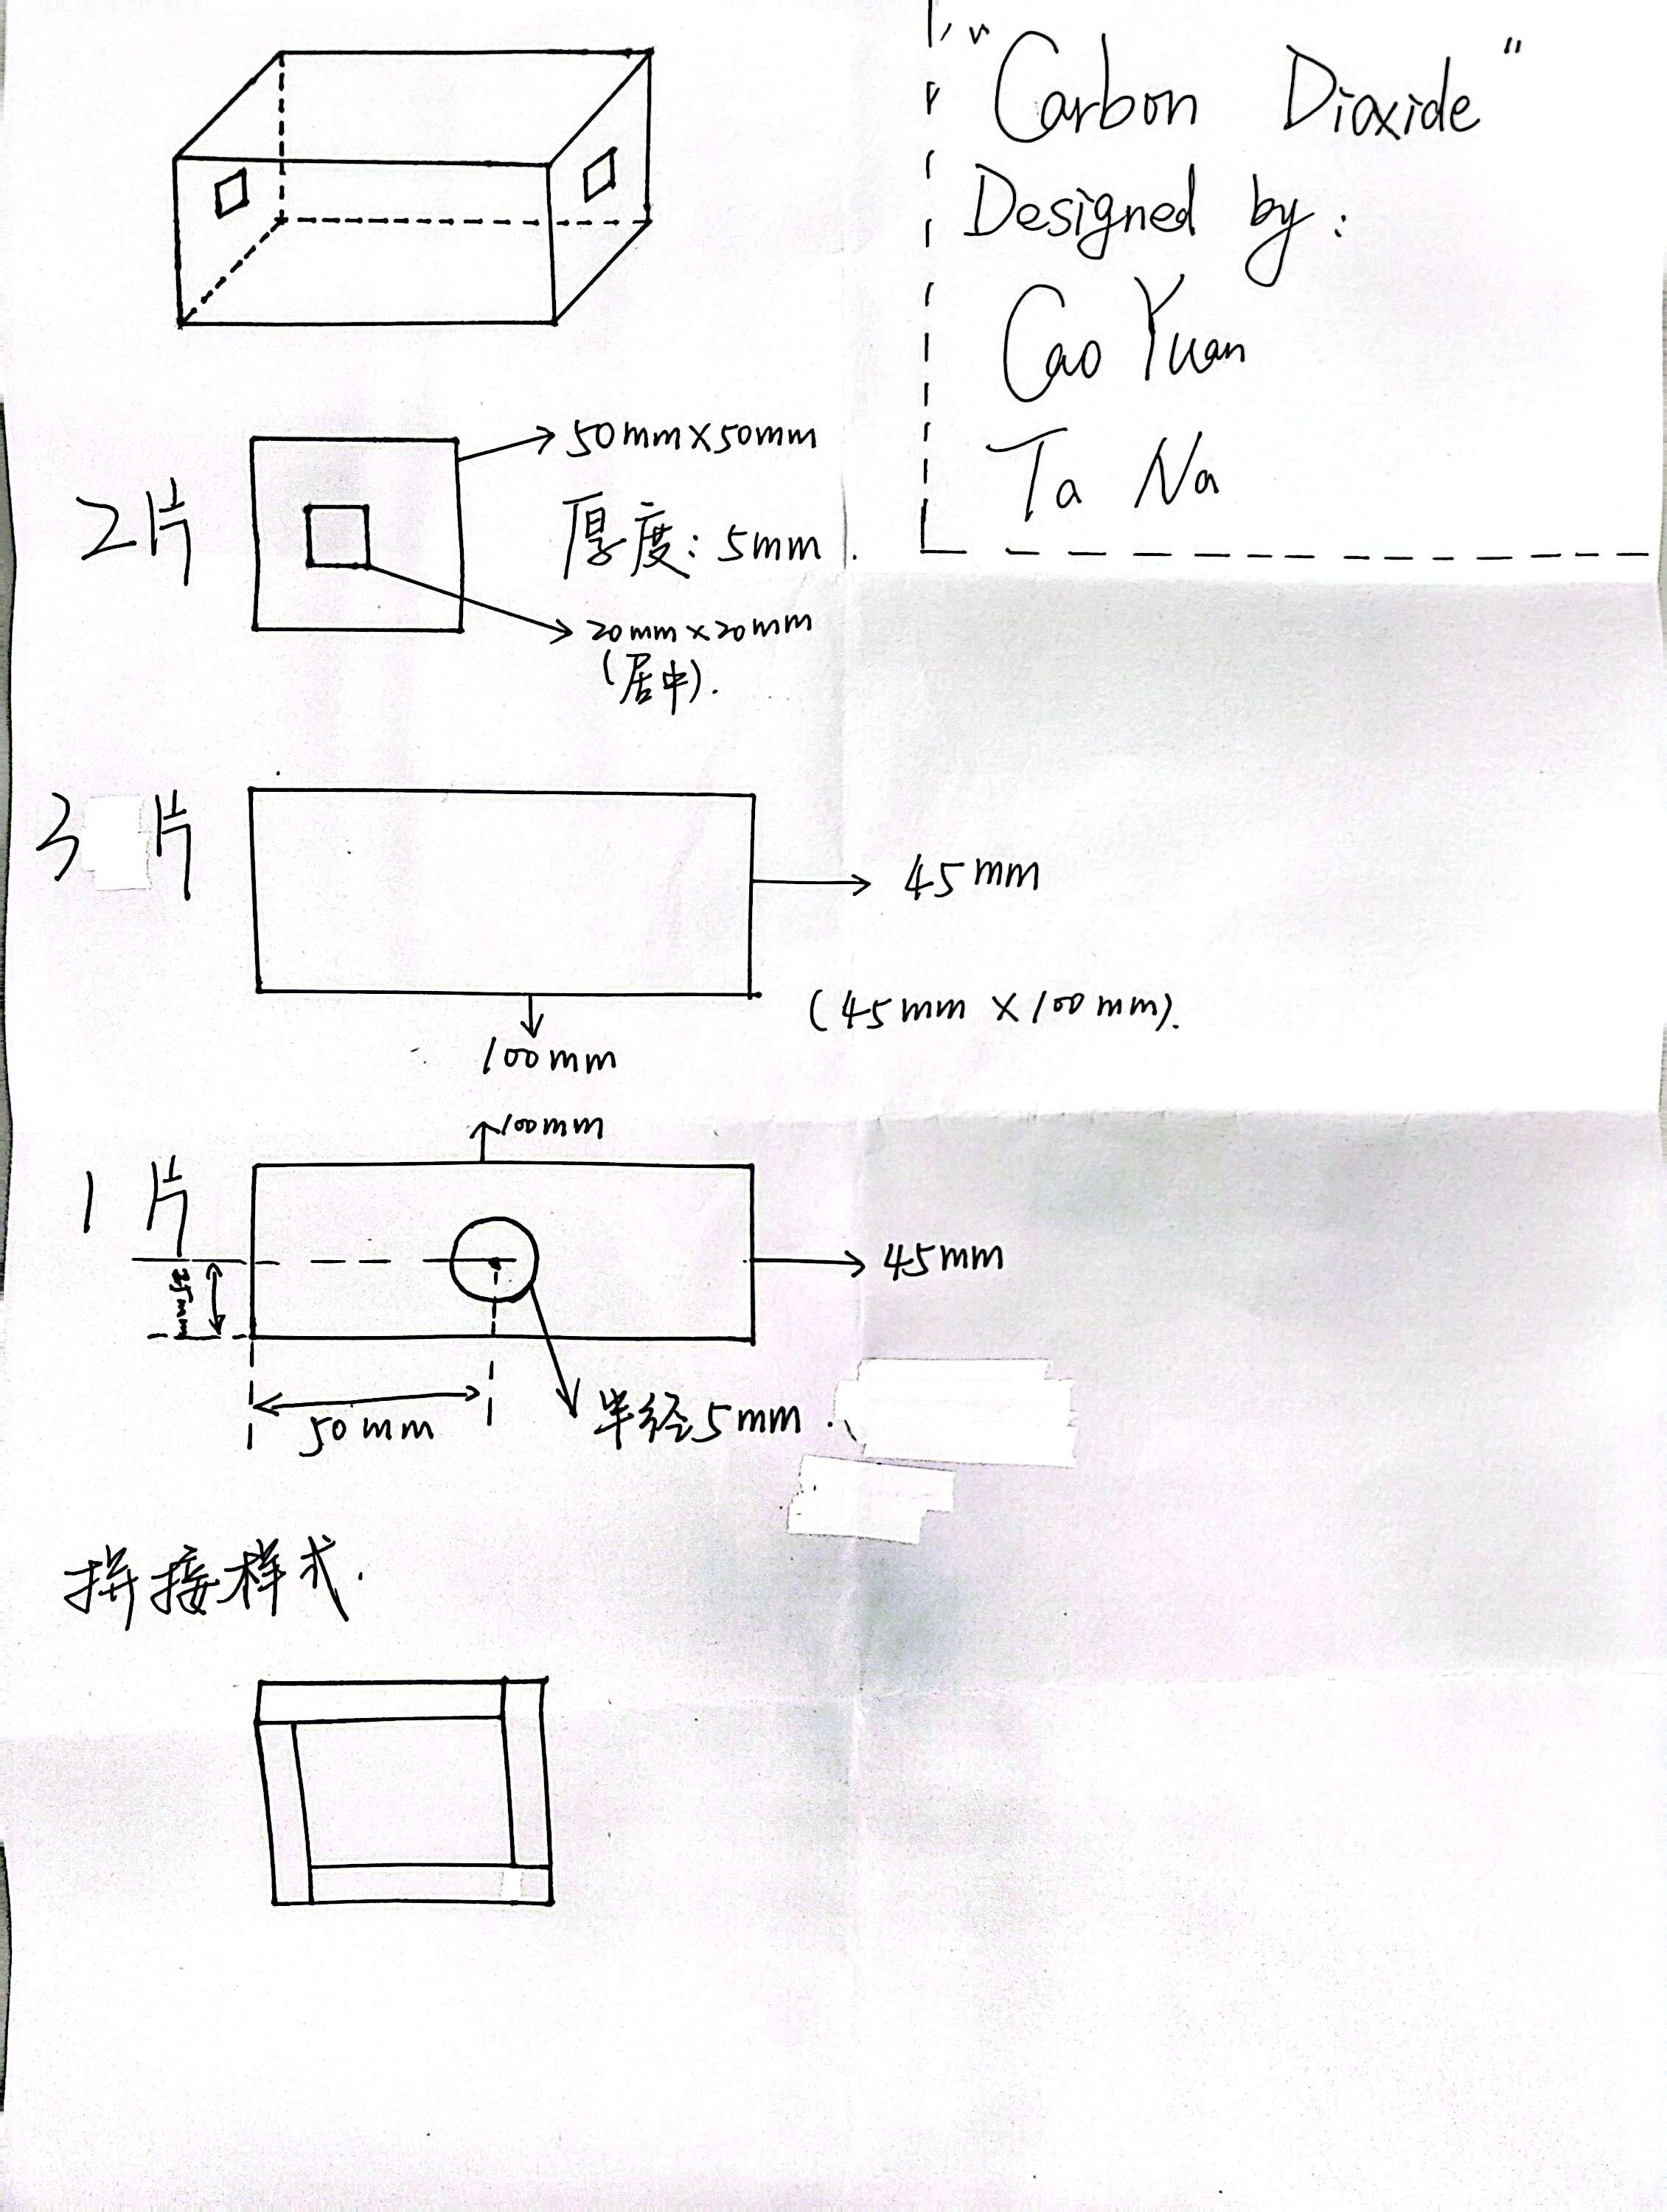 "Carbon Dioxide"
Designed by:
Cao Yuan
Ta Na
2片
50mm×50mm
厚度: 5mm.
20mm×20mm
(居中).
3片
45mm
(45mm×100mm).
100mm
100mm
1片
25mm
45mm
50mm
半径5mm.
拼接样式.